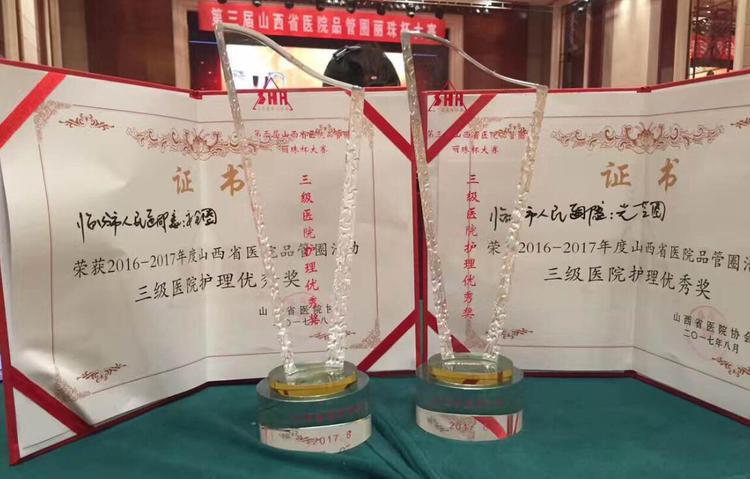 第三届山西省医院品管圈丽珠杯大赛
证书
临汾市人民医院
荣获2016-2017年度山西省医院品管圈活动
三级医院护理优秀奖
山西省医院协
二〇一七年八
SHH
第三届山西省医院品管圈
丽珠杯大赛
三级医院护理优秀奖
2017.8
SHH
第三届山西省医院品管圈
丽珠杯大赛
三级医院护理优秀奖
2017.8
证书
临汾市人民医院
荣获2016-2017年度山西省医院品管圈活
三级医院护理优秀奖
山西省医院协会
二〇一七年八月